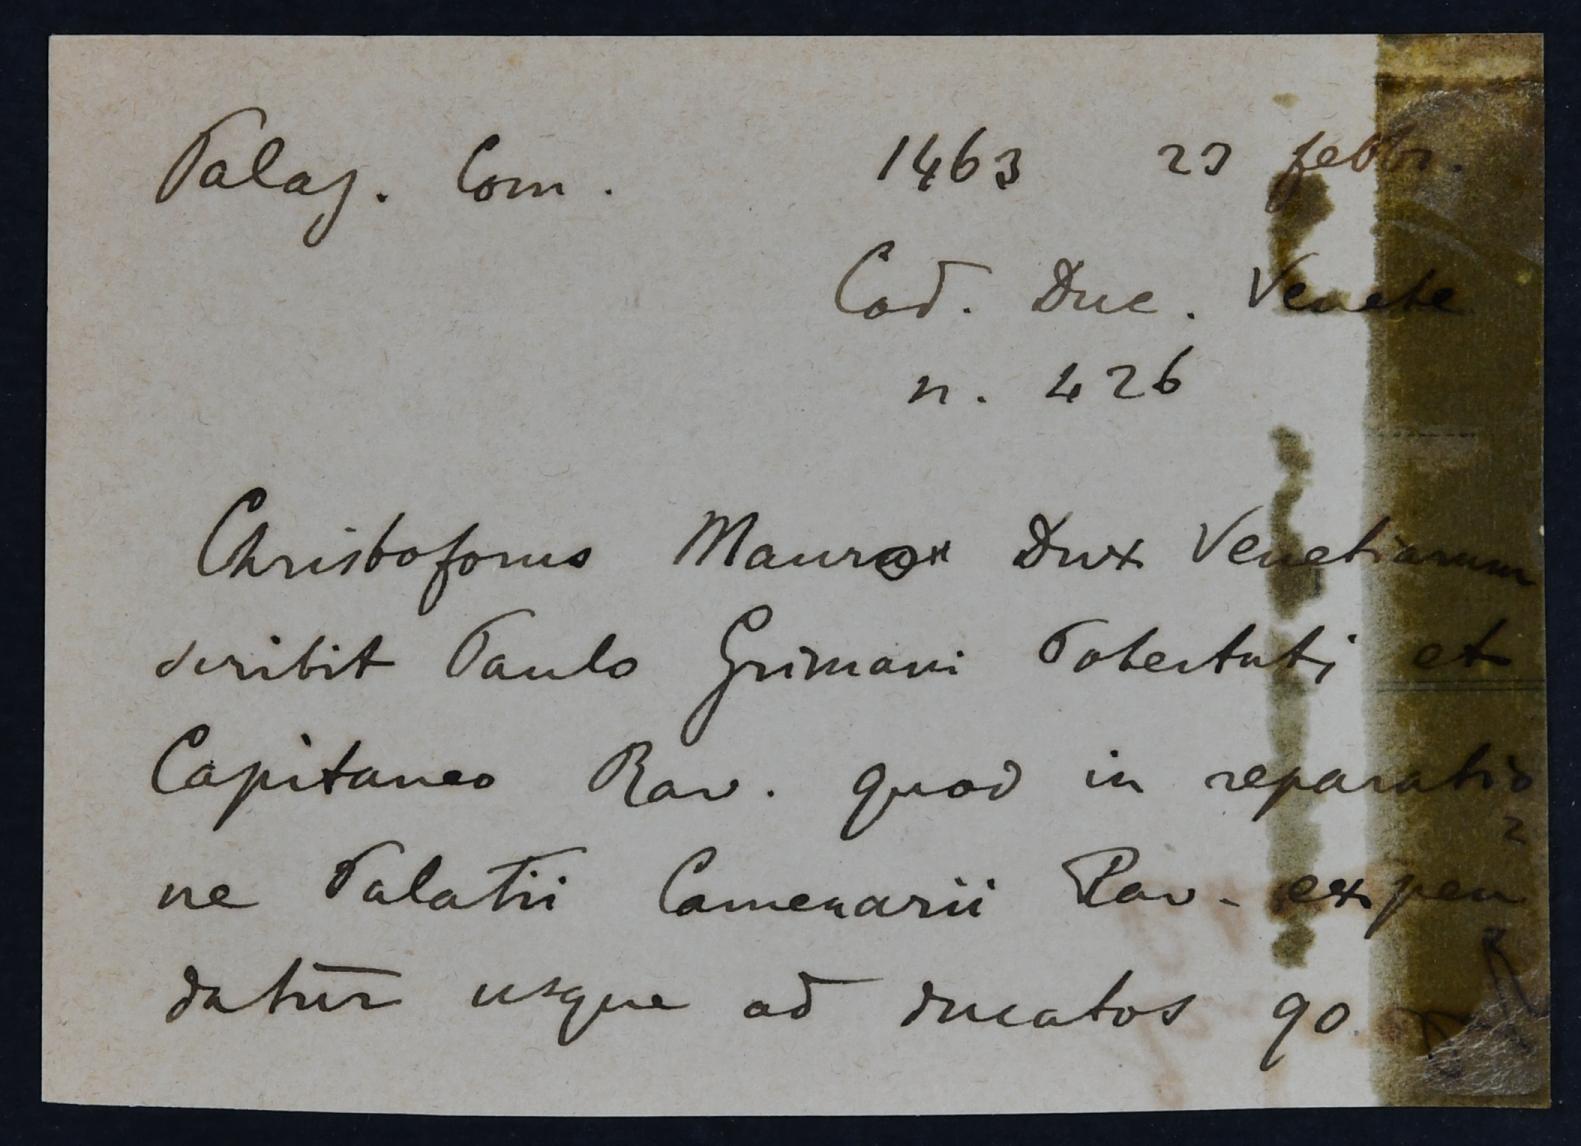 Palaz. Com. 1463 23 febbr.
Cod. Duc. Venete
n. 426
Christoforus Mauro Dux Venetiarum
scribit Paulo Grimani Potestati et
Capitaneo Rav. quod in reparatio
ne Palatii Camerarii Rav. expen
datur usque ad ducatos 90